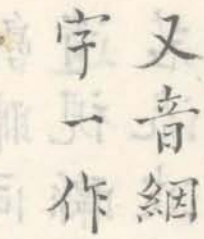 又音綑
字一作